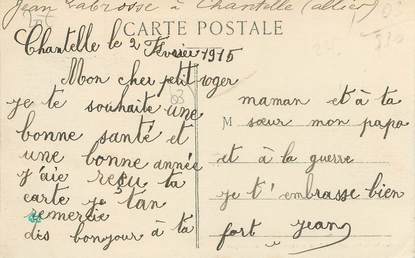 Jean Labrosse à Chantelle (allier)
CARTE POSTALE
Chantelle le 2 Février 1915
Mon cher petit roger
je te souhaite une
bonne santé et
une bonne année
j'aie reçu ta
carte je t'an
remercie
dis bonjour à ta
maman et à ta
M sœur mon papa
et à la guerre
je t'embrasse bien
fort jean